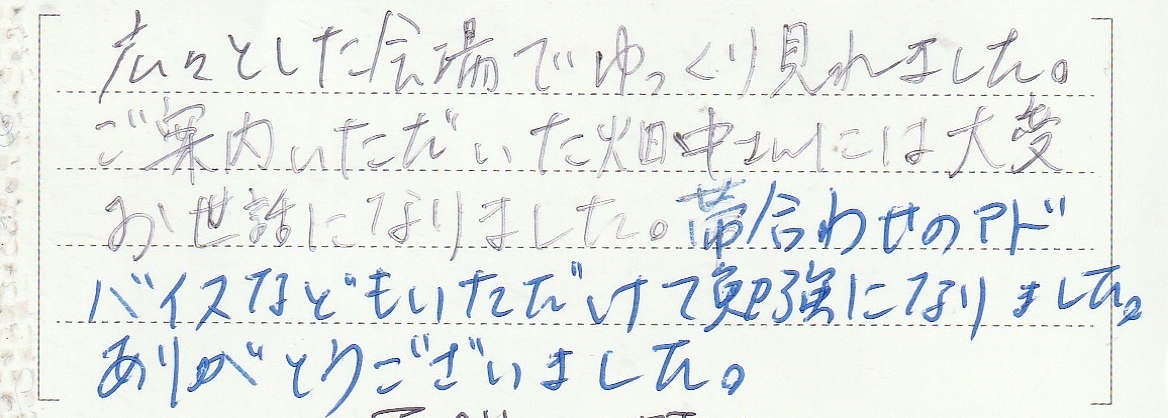 広々とした会場でゆっくり見れました。
ご案内いただいた畑中さんには大変
お世話になりました。帯合わせのアド
バイスなどもいただけて勉強になりました。
ありがとうございました。